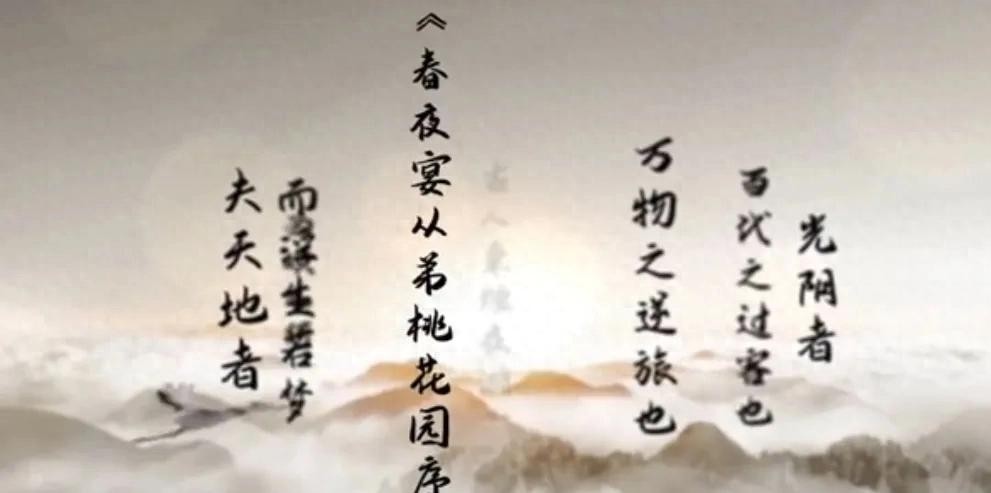 《春夜宴从弟桃花园序
夫天地者
万物之逆旅也
光阴者
百代之过客也
而浮生若梦